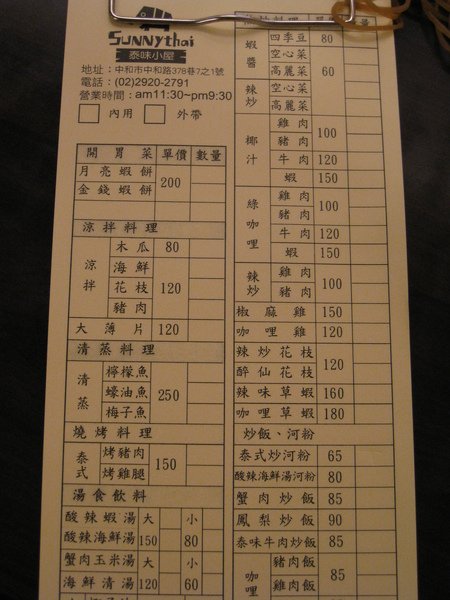 SUNNYthai
泰味小屋
地址：中和市中和路378巷7之1號
電話：(02)2920-2791
營業時間：am11:30~pm9:30
內用 外帶
開胃菜 單價 數量
月亮蝦餅
金錢蝦餅
200
涼拌料理
涼拌
木瓜 80
海鮮
花枝 120
豬肉
大薄片 120
清蒸料理
清蒸
檸檬魚
蠔油魚 250
梅子魚
燒烤料理
泰式
烤豬肉
烤雞腿
150
湯食飲料
酸辣蝦湯 大 小
酸辣海鮮湯 150 80
蟹肉玉米湯 大 小
海鮮清湯 120 60
料理 量
蝦醬
四季豆 80
空心菜
高麗菜
60
辣炒
空心菜
高麗菜
椰汁
雞肉
豬肉
100
牛肉 120
蝦 150
綠咖哩
雞肉
豬肉
100
牛肉 120
蝦 150
辣炒
雞肉
豬肉
100
椒麻雞 150
咖哩雞 120
辣炒花枝
醉仙花枝
120
辣味草蝦 160
咖哩草蝦 180
炒飯、河粉
泰式炒河粉 65
酸辣海鮮湯河粉 80
蟹肉炒飯 85
鳳梨炒飯 90
泰味牛肉炒飯 85
咖哩
豬肉飯
雞肉飯
85
80